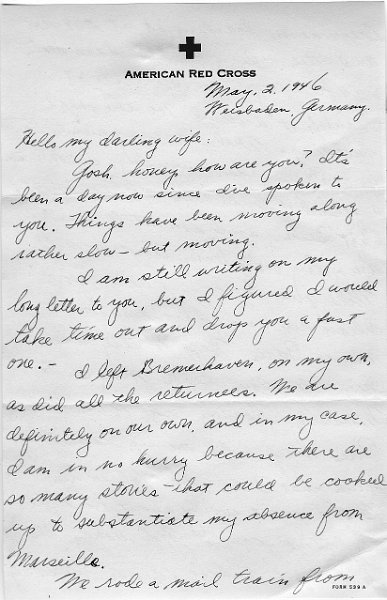 AMERICAN RED CROSS
May, 2, 1946
Weisbaden, Germany.
Hello my darling wife:
Gosh, honey, how are you? It's
been a day now since I've spoken to
you. Things have been moving along
rather slow – but moving.
I am still writing on my
long letter to you, but I figured I would
take time out and drop you a fast
one. – I left Bremerhaven, on my own,
as did all the returnees. We are
definitely on our own, and in my case,
I am in no hurry because there are
so many stories – that could be cooked
up to substantiate my absence from
Marseille.
We rode a mail train from
FORM 539 A